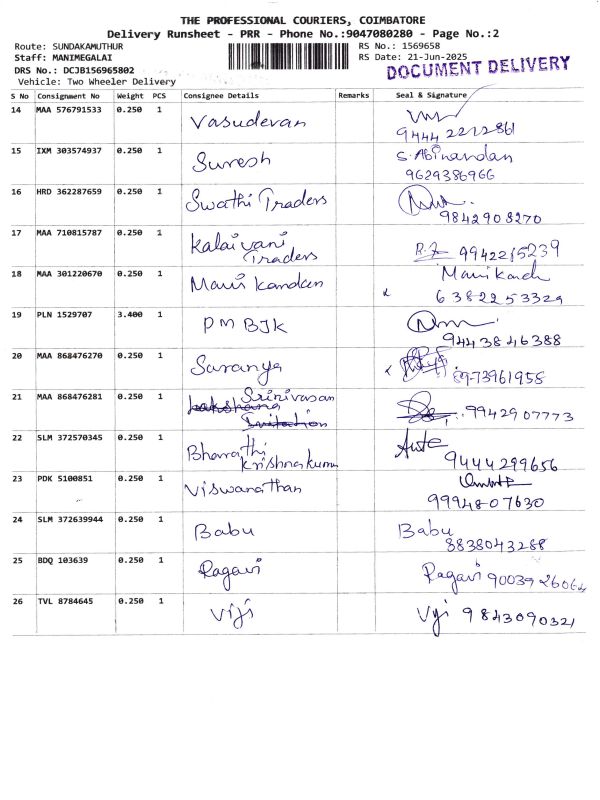 THE PROFESSIONAL COURIERS, COIMBATORE
Delivery Runsheet - PRR - Phone No.:9047080280 - Page No.:2
Route: SUNDAKAMUTHUR RS No.: 1569658
Staff: MANIMEGALAI RS Date: 21-Jun-2025
DRS No.: DCJB156965802 DOCUMENT DELIVERY
Vehicle: Two Wheeler Delivery
S No Consignment No Weight PCS Consignee Details Remarks Seal & Signature
14 MAA 576791533 0.250 1 Vasudevan
9444 2212861
15 IXM 303574937 0.250 1 Suresh S. Abinandan
9629386966
16 HRD 362287659 0.250 1 Swathi Traders
9842908270
17 MAA 710815787 0.250 1 Kalaivani
Traders 9942215239
18 MAA 301220670 0.250 1 Mani kandan
6382253329
19 PLN 1529707 3.400 1 PMBJK
9443846388
20 MAA 868476270 0.250 1 Saranya
89-73961958
21 MAA 868476281 0.250 1 Srinivasan
9942907773
22 SLM 372570345 0.250 1 Bharathi
Krishnakumar 9444299656
23 PDK 5100851 0.250 1 Viswanathan
9994807630
24 SLM 372639944 0.250 1 Babu Babu
8838043288
25 BDQ 103639 0.250 1 Ragavi Ragavi 9003926064
26 TVL 8784645 0.250 1 Viji Vyi 9843090321